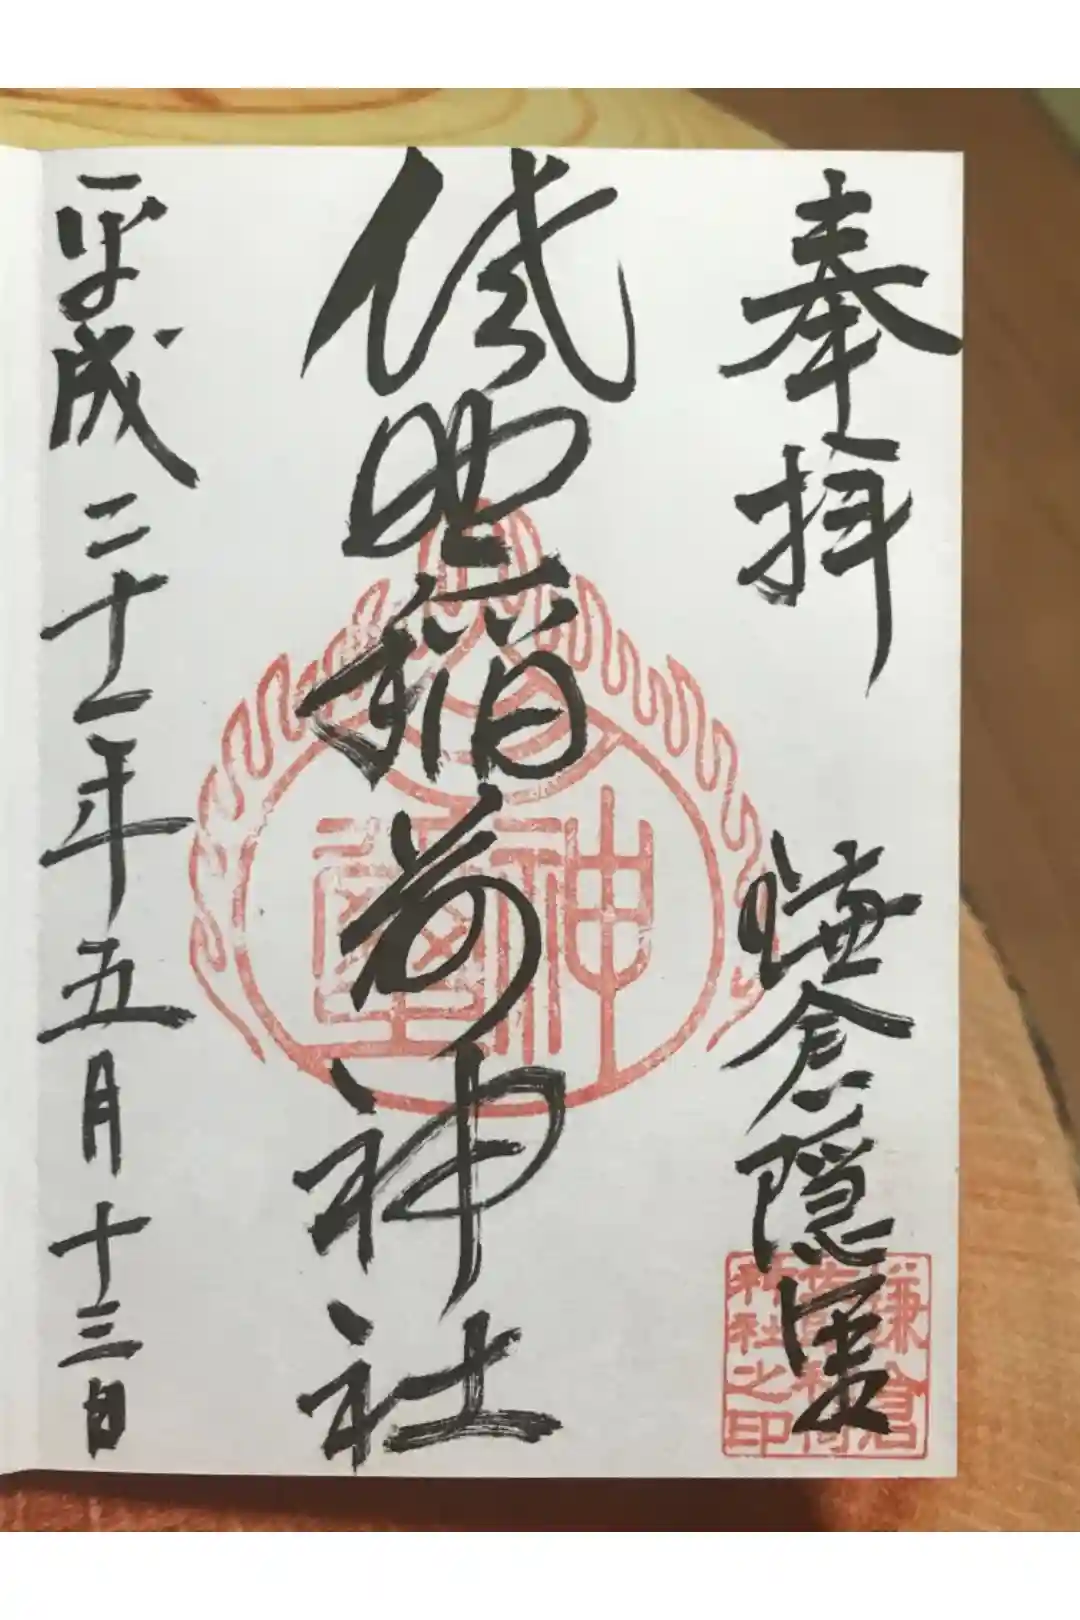 奉拝
鎌倉隠里
佐助稲荷神社
平成二十一年五月十三日
神璽
鎌倉
佐助稲荷
神社之印